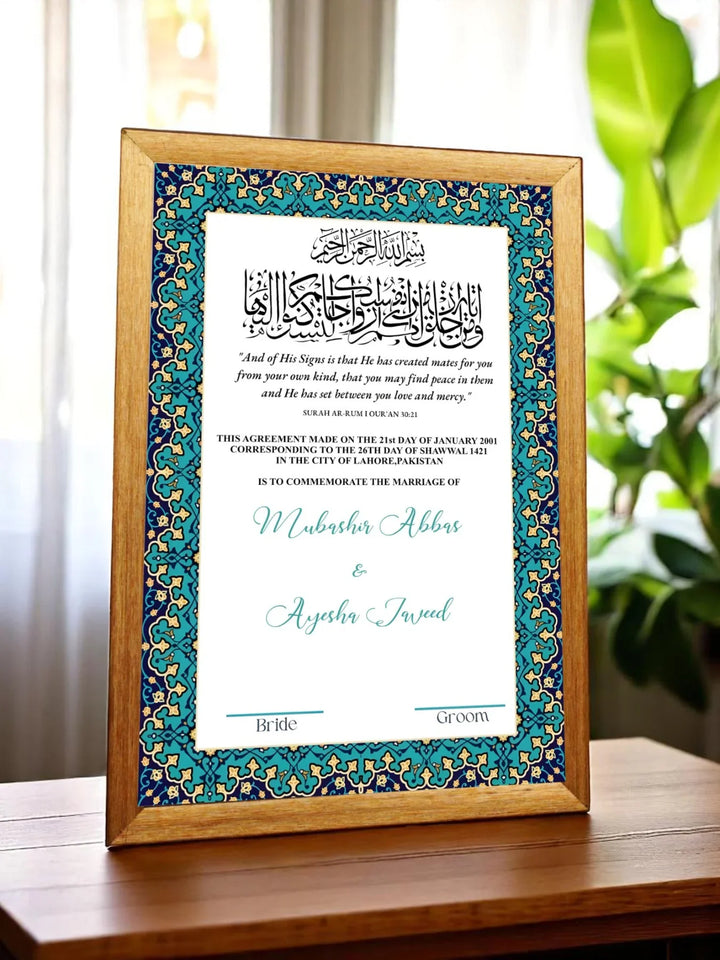 بسم الله الرحمن الرحيم
ومن آياته أن خلق لكم من أنفسكم أزواجا لتسكنوا إليها
"And of His Signs is that He has created mates for you
from your own kind, that you may find peace in them
and He has set between you love and mercy."
SURAH AR-RUM I OUR'AN 30:21
THIS AGREEMENT MADE ON THE 21st DAY OF JANUARY 2001
CORRESPONDING TO THE 26TH DAY OF SHAWWAL 1421
IN THE CITY OF LAHORE,PAKISTAN
IS TO COMMEMORATE THE MARRIAGE OF
Mubashir Abbas
&
Ayesha Jaweed
Bride
Groom